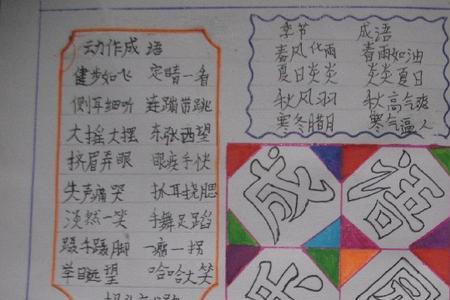 动作成语
健步如飞 定晴一看
侧耳细听 连蹦带跳
大摇大摆 东张西望
挤眉弄眼 眼疾手快
失声痛哭 抓耳挠腮
淡然一笑 手舞足蹈
蹑手蹑脚 一瘸一拐
举目远望 哈哈大笑
季节 成语
春风化雨 春雨如油
夏日炎炎 炎炎夏日
秋风习习 秋高气爽
寒冬腊月 寒气逼人
成语
乐园